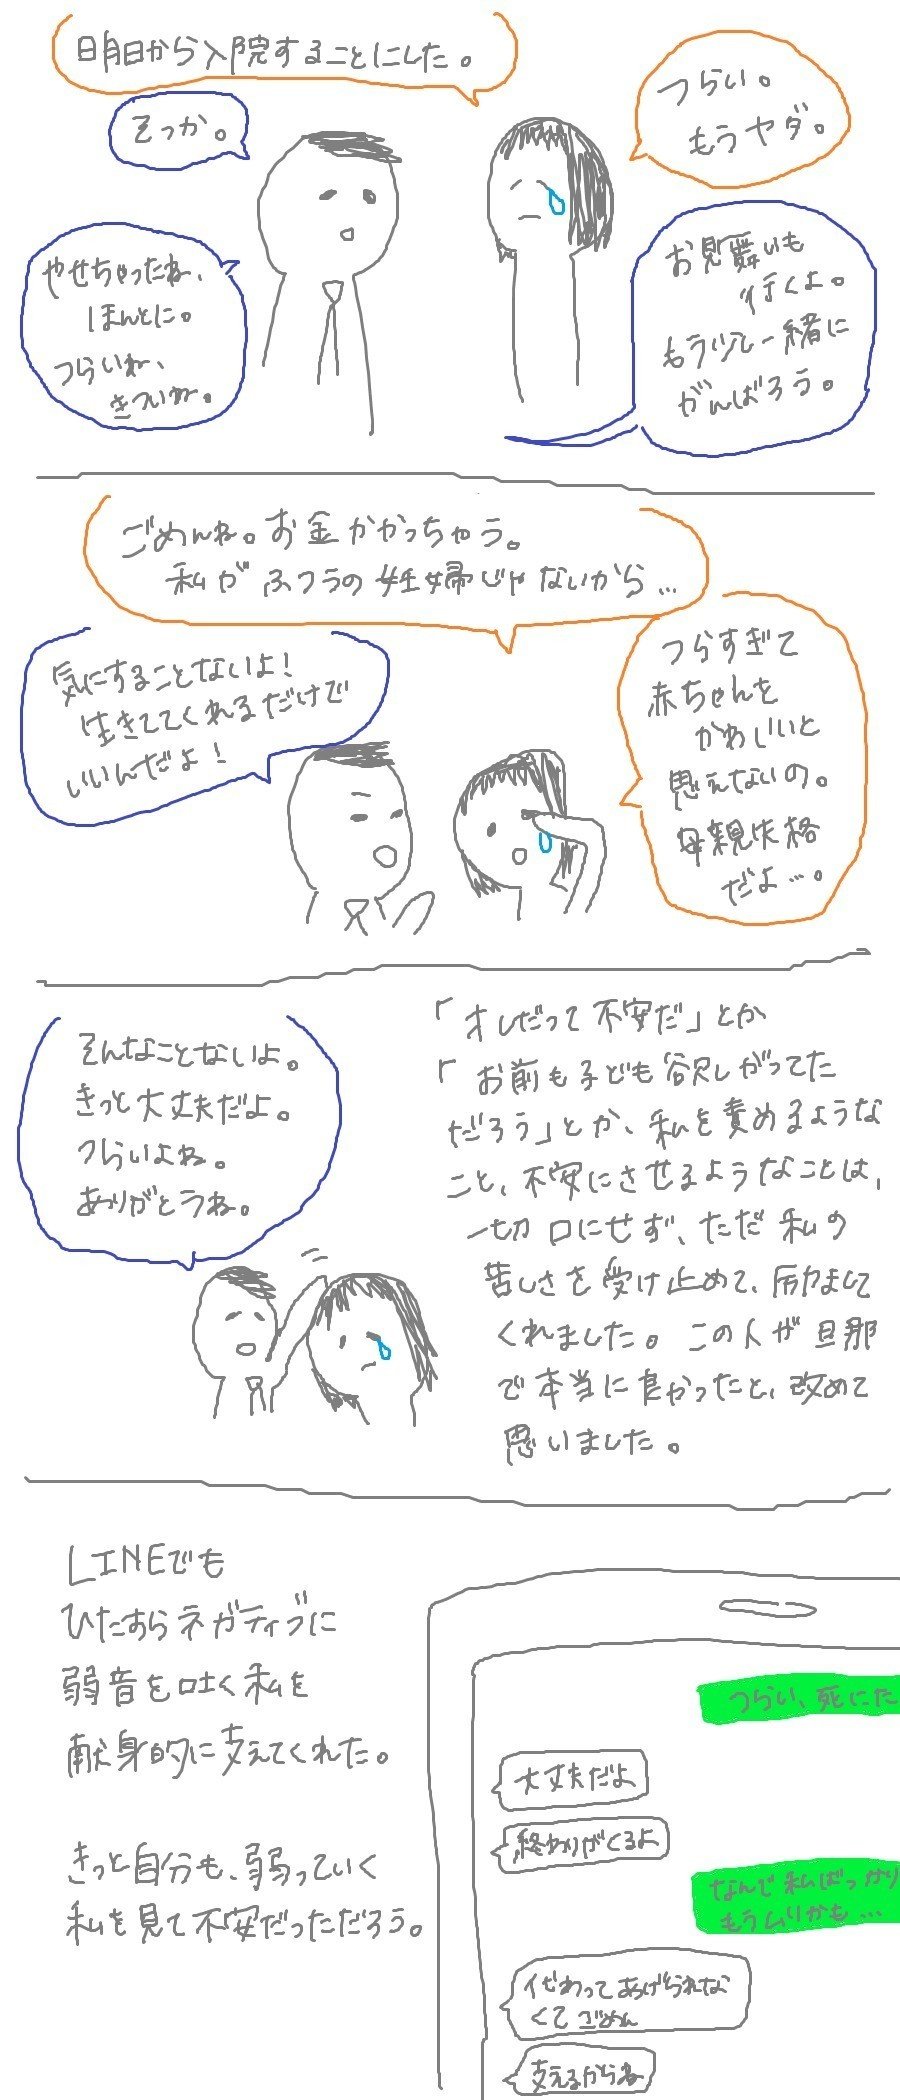 明日から入院することにした。
そっか。
つらい。
もうヤダ。
やせちゃったね、
ほんとに。
つらいね、
きついね。
お見舞いも
行くよ。
もう少し一緒に
がんばろう。
ごめんね。お金かかっちゃう。
私がふつうの妊婦じゃないから…
気にすることないよ！
生きててくれるだけで
いいんだよ！
つらすぎて
赤ちゃんを
かわいいと
思えないの。
母親失格
だよ…。
そんなことないよ。
きっと大丈夫だよ。
つらいよね。
ありがとうね。
「オレだって不安だ」とか
「お前も子ども欲しがってた
だろう」とか、私を責めるような
こと、不安にさせるようなことは、
一切口にせず、ただ私の
苦しさを受け止めて、励まして
くれました。この人が旦那
で本当に良かったと、改めて
思いました。
LINEでも
ひたすらネガティブに
弱音を吐く私を
献身的に支えてくれた。
きっと自分も、弱っていく
私を見て不安だっただろう。
つらい、死にた
大丈夫だよ
終わりがくるよ
なんで私ばっかり
もうムリかも…
代わってあげられな
くてごめん
支えるからね